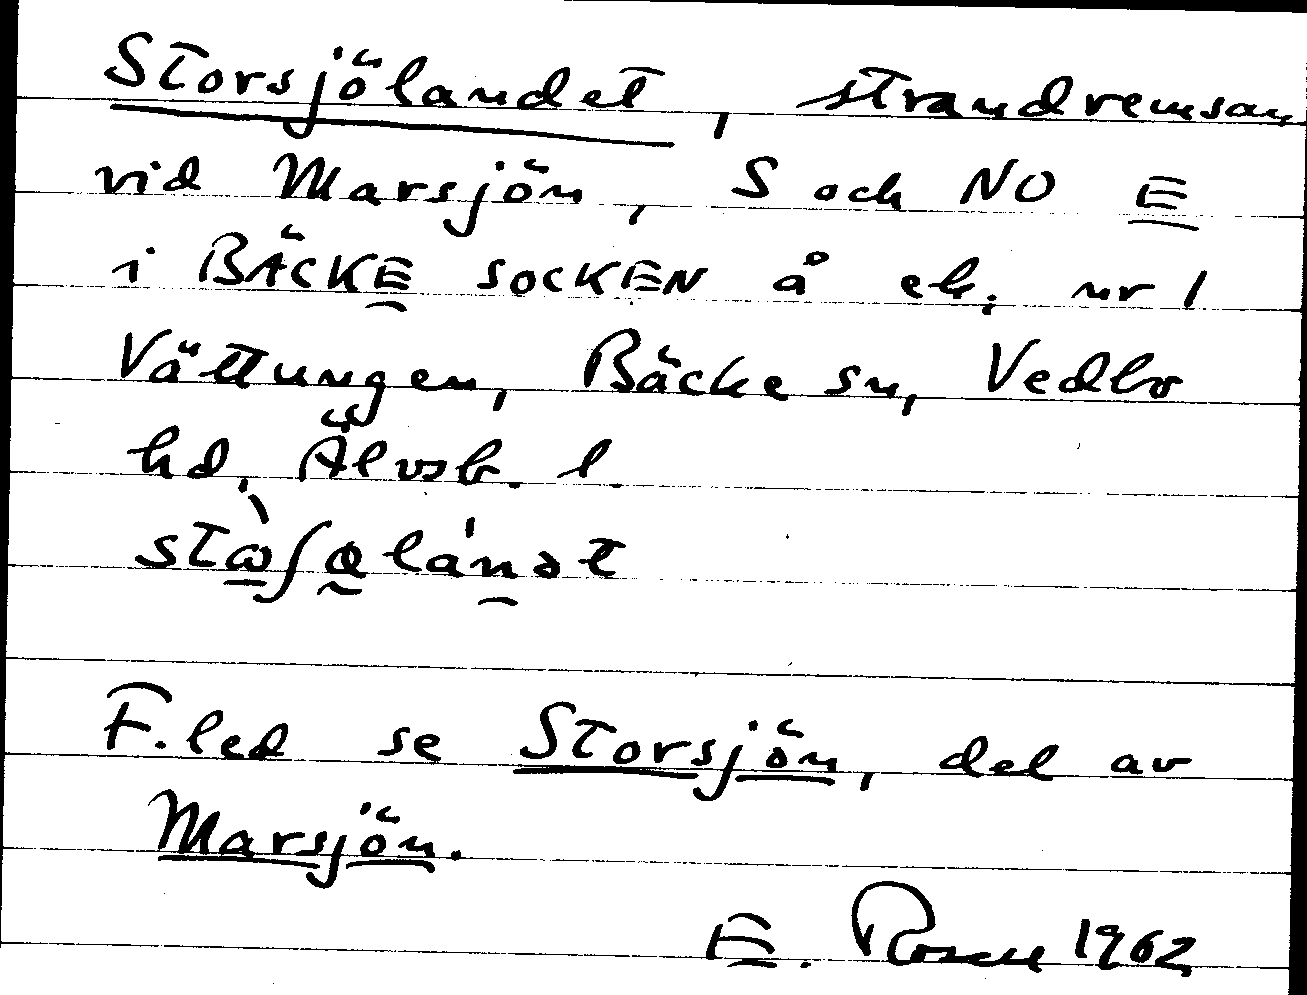 Storsjölandet, strandremsan
vid Marsjön, S och NO E
i BÄCKE SOCKEN å ek. nr 1
Vättungen, Bäcke sn, Vedbo
hd, Älvsb. l.
F.led se Storsjön, del av
Marsjön.
E. Rosell 1962